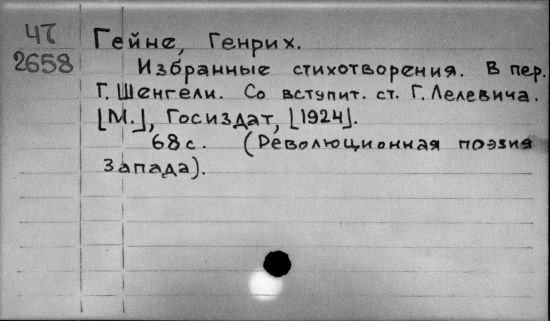 ЧТ
2658
Гейне, Генрих.
Избранные стихотворения. В пер.
Г. Шенгели. Со вступит. ст. Г. Лелевича.
[М.], Госиздат, [1924].
68с. (Революционная поэзия
Запада).